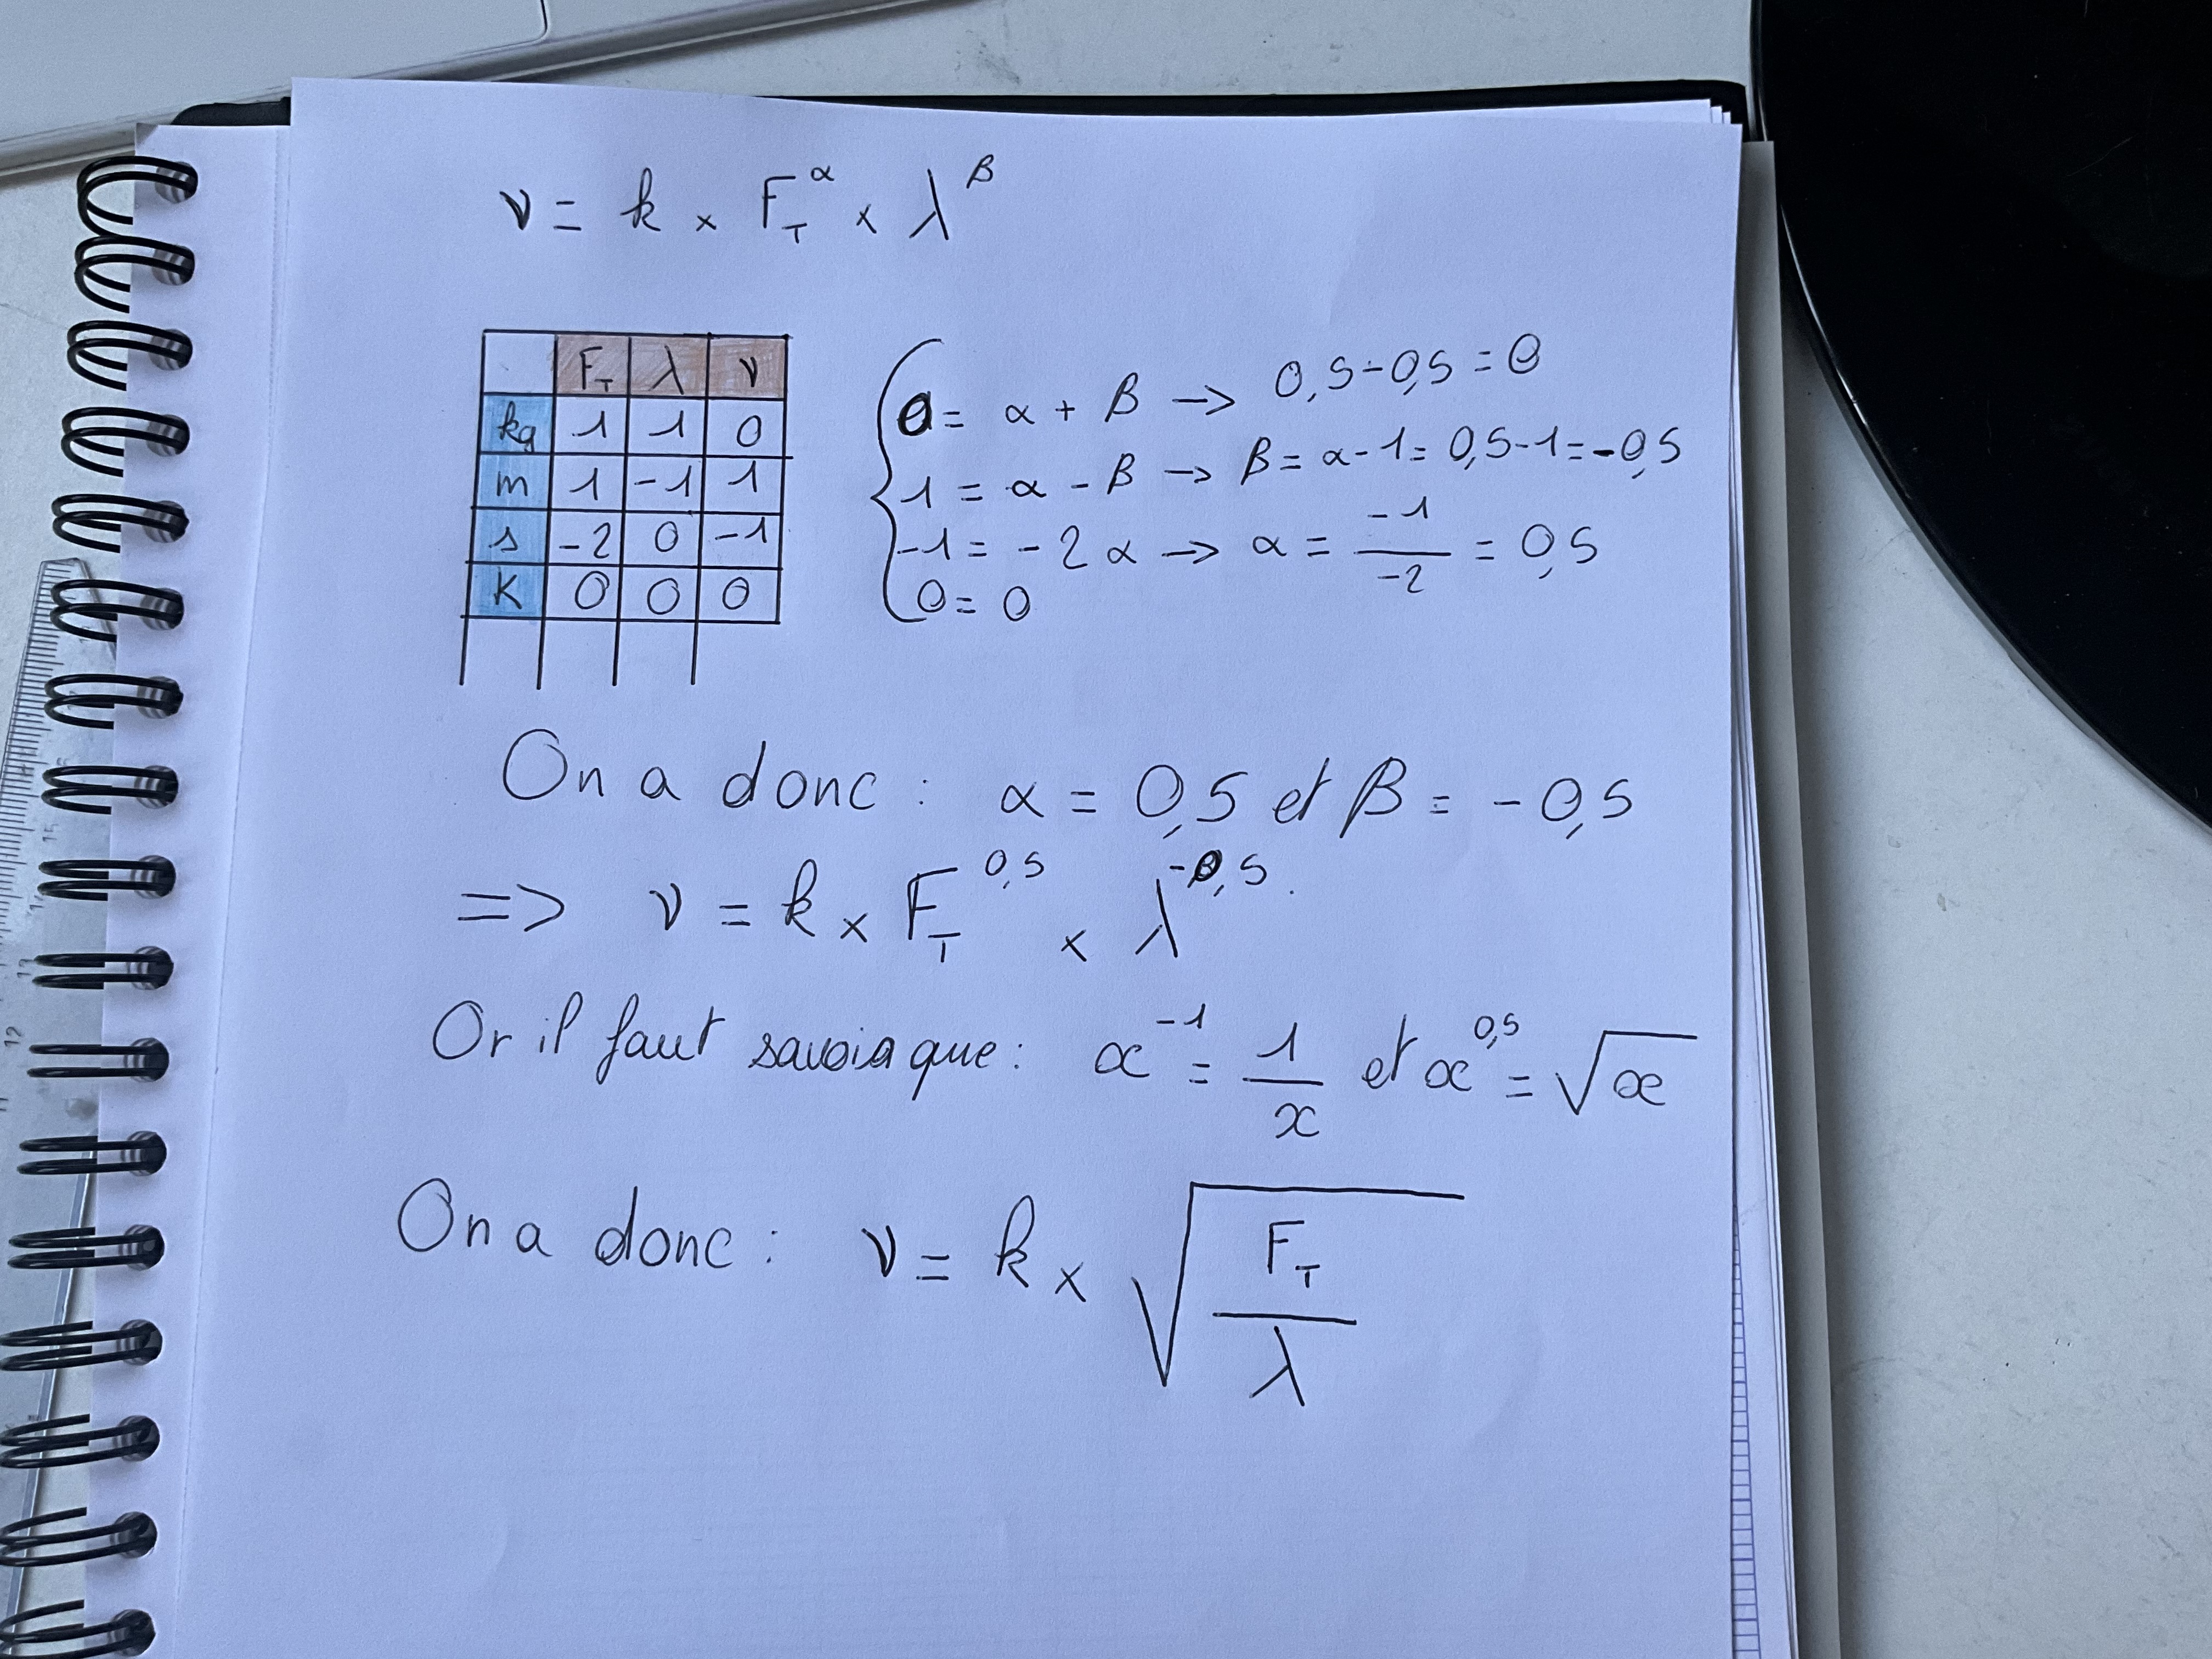 v = k × F_T^α × λ^β
F_T λ v
kg 1 1 0
m 1 -1 1
s -2 0 -1
K 0 0 0
0 = α + β → 0,5-0,5 = 0
1 = α - β → β = α-1 = 0,5-1 = -0,5
-1 = -2α → α = -1/-2 = 0,5
0 = 0
On a donc : α = 0,5 et β = -0,5
=> v = k × F_T^0,5 × λ^-0,5.
Or il faut savoir que : x^-1 = 1/x et x^0,5 = √x
On a donc : v = k × √(F_T/λ)